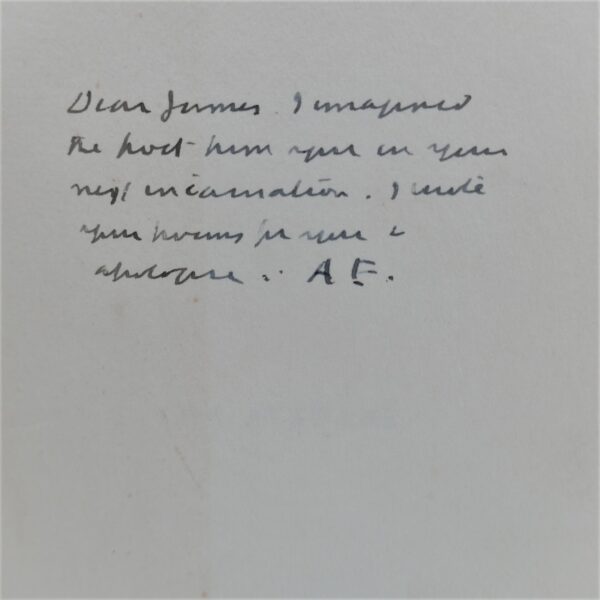 Dear James. I imagined
the poet from you in your
next incarnation. I write
your poems for you &
apologise. A E.